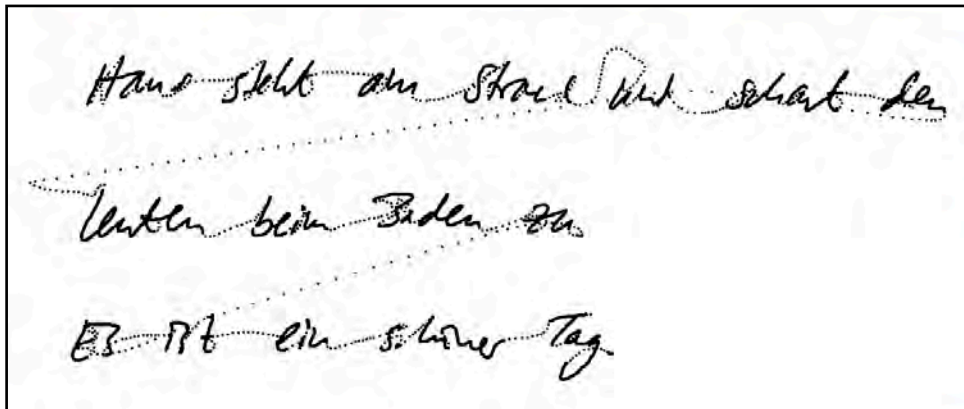 Hans steht am Strand und schaut den
Leuten beim Baden zu
Es ist ein schöner Tag